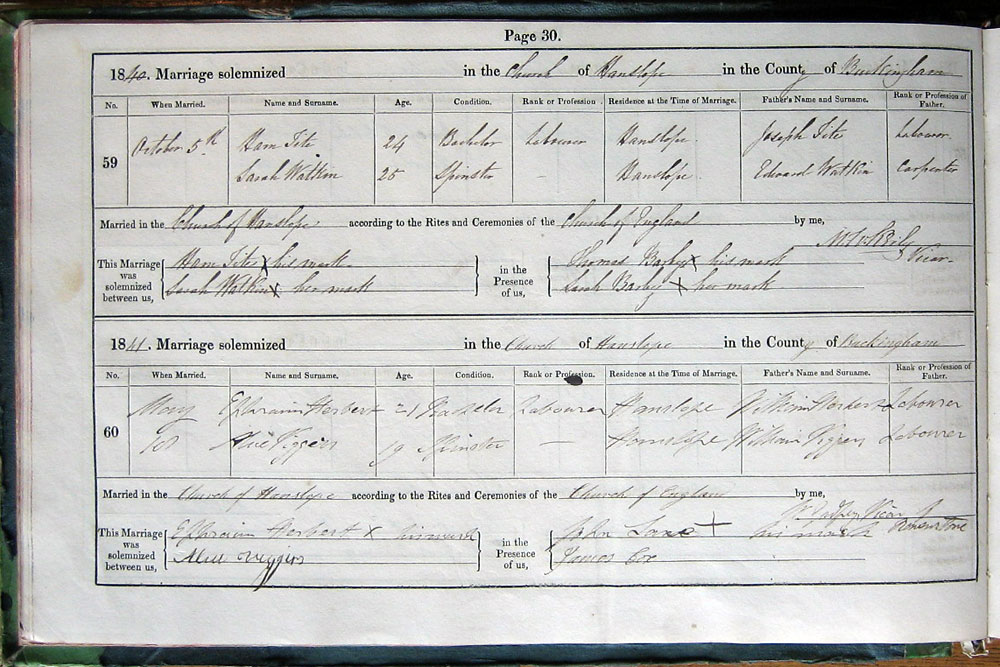 Page 30.
1840. Marriage solemnized in the Church of Hanslope in the County of Buckingham
No. When Married. Name and Surname. Age. Condition. Rank or Profession. Residence at the Time of Marriage. Father's Name and Surname. Rank or Profession of Father.
59 October 5th Ham Tite 24 Bachelor Labourer Hanslope Joseph Tite Labourer
Sarah Watkin 25 Spinster — Hanslope Edward Watkin Carpenter
Married in the Church of Hanslope according to the Rites and Ceremonies of the Church of England by me,
Vicar
This Marriage was solemnized between us, Ham Tite x his mark in the Presence of us, Thomas Barby x his mark
Sarah Watkin x her mark Sarah Barby x her mark
1841. Marriage solemnized in the Church of Hanslope in the County of Buckingham
No. When Married. Name and Surname. Age. Condition. Rank or Profession. Residence at the Time of Marriage. Father's Name and Surname. Rank or Profession of Father.
60 May Ephraim Herbert 21 Bachelor Labourer Hanslope William Herbert Labourer
Alice Viggers 19 Spinster — Hanslope William Labourer
Married in the Church of Hanslope according to the Rites and Ceremonies of the Church of England by me,
Vicar
This Marriage was solemnized between us, Ephraim Herbert x his mark in the Presence of us, John Lane + his mark
Alice Viggers James Cox